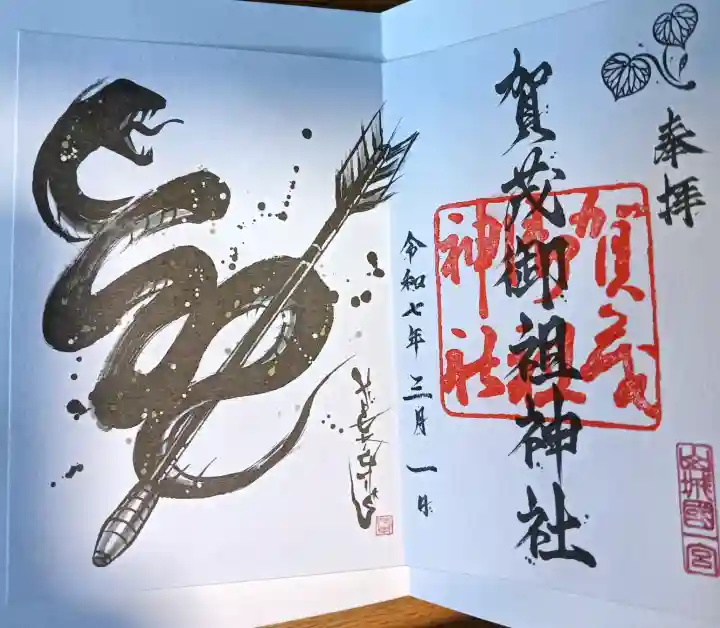 奉拝
賀茂御祖神社
賀茂御祖神社
山城國一宮
令和七年三月一日